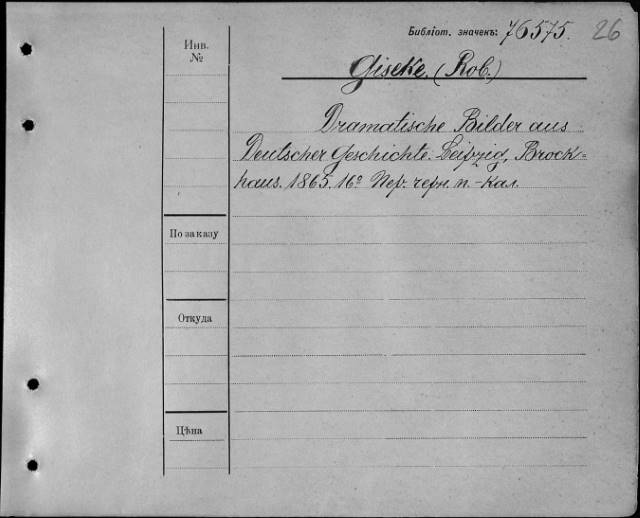 Библіот. значекъ: 76575. 26
Инв.
№
Giseke. (Rob.)
Dramatische Bilder aus
Deutscher Geschichte. Leipzig, Brock=
haus. 1865. 16º Пер. черн. п.-кал.
По заказу
Откуда
Цѣна